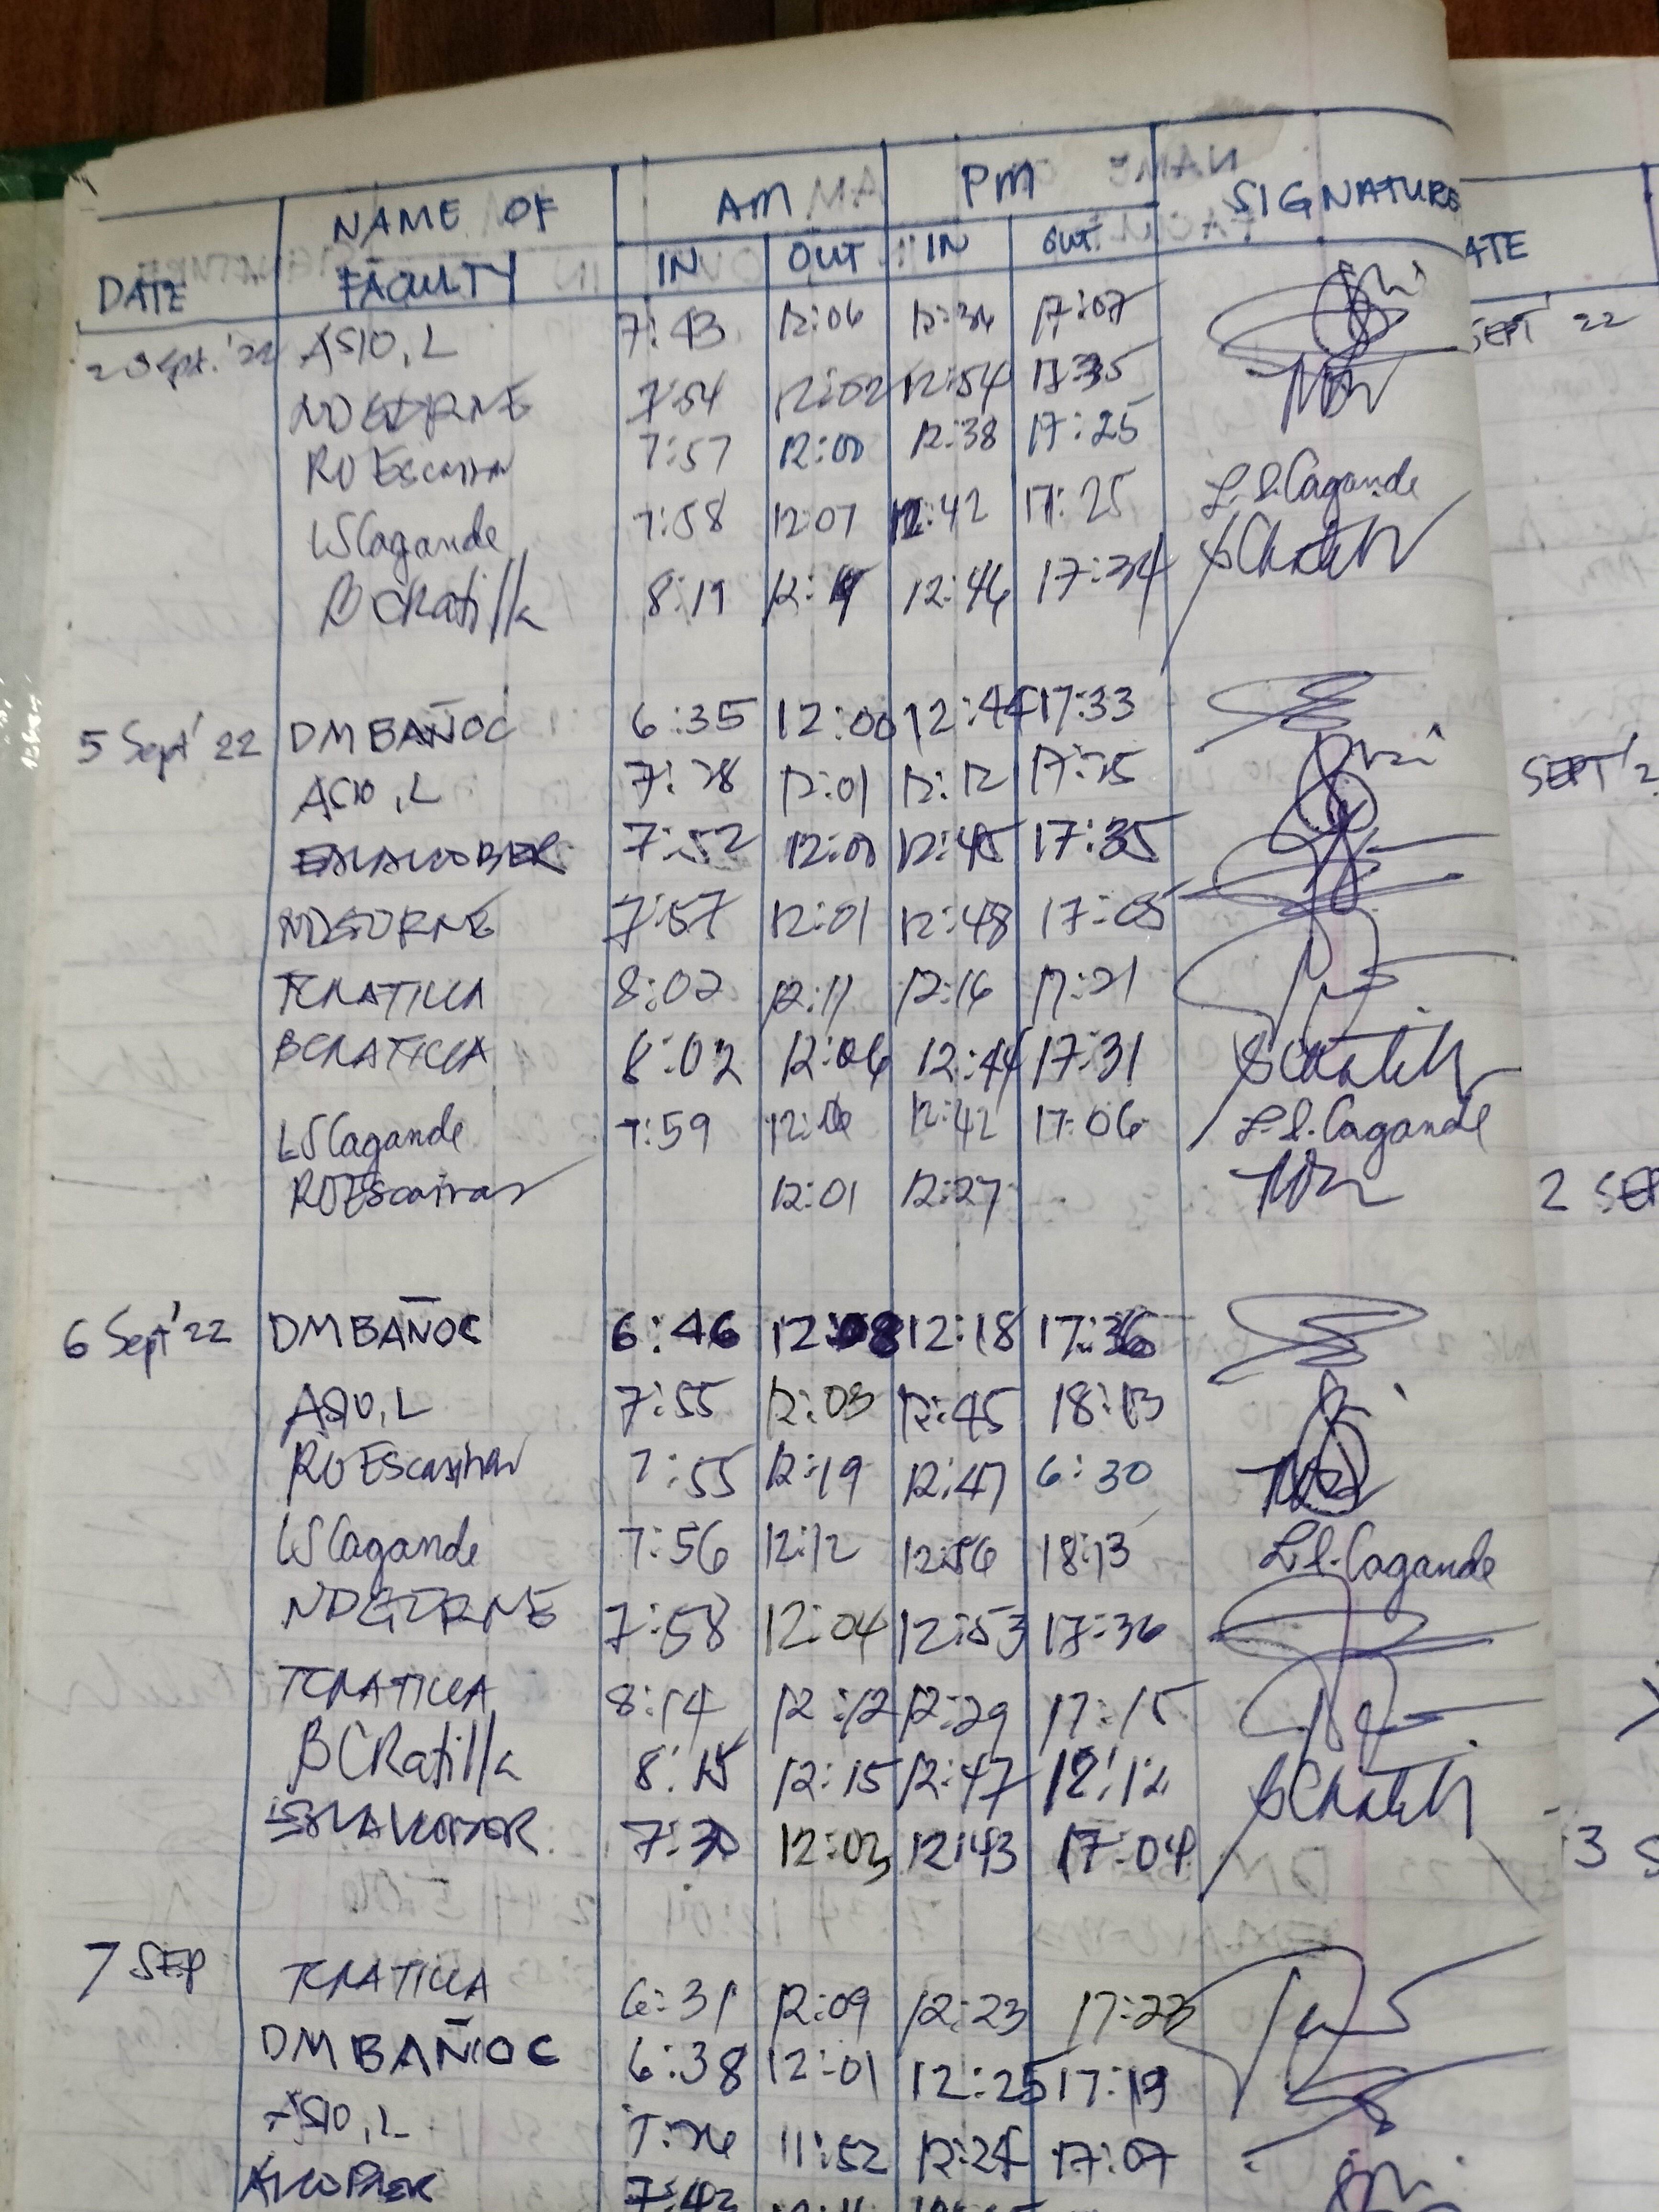 NAME OF AM PM SIGNATURE
DATE FACULTY IN OUT IN OUT
ATE
ASIO, L 7:43 12:06 17:07
SEPT' 22
NDGORNE 7:54 12:02 12:54
RO Escasinas 7:57 12:00 12:38 17:25
LSCagande 7:58 12:07 12:42 17:25 L.S.Cagande
BCRatilla 8:19 12:46 17:34
5 Sept' 22 DMBAÑOC 6:35 12:00 12:44 17:33
ASIO, L 7:28 12:01 12:12
SEPT '2
7:52 12:00 12:45 17:35
NDGORNE 7:57 12:01 12:48 17:05
TCRATILLA 8:02 12:11 12:16 17:21
BCRATILLA 8:02 12:06 12:44 17:31
LSCagande 7:59 12:42 17:06 L.S.Cagande
ROEscasinas 12:01 12:27
2 SEP
6 Sept' 22 DMBAÑOC 6:46 12:08 12:18 17:36
ASIO, L 7:55 12:03 12:45 18:13
RO Escasinas 7:55 12:19 12:47 6:30
LSCagande 7:56 12:12 12:56 18:13 L.S.Cagande
NDGORNE 7:58 12:04 12:53 17:36
TCRATILLA 8:14 12:12 12:29 17:15
BCRatilla 8:15 12:15 12:47
12:03 12:43 17:04
3 S
7 SEP TCRATILLA 6:31 12:09 12:23 17:23
DMBAÑOC 6:38 12:01 12:25 17:19
ASIO, L 11:52 17:07
ALCOBER 7:42